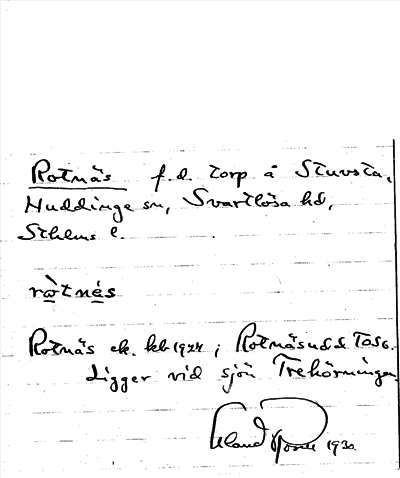 Rotnäs f.d. torp å Stuvsta,
Huddinge sn, Svartlösa hd,
Sthlms l.
ròtnés
Rotnäs ek. kb 1924; Rotnäsudd Top6.
Ligger vid sjön Trehörningen.
1930.